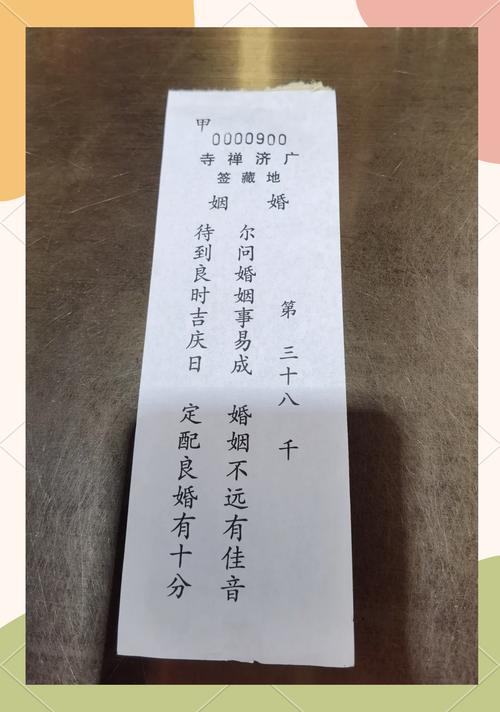 甲
0000900
寺禅济广
签藏地
姻婚
第三十八千
尔问婚姻事易成 婚姻不远有佳音
待到良时吉庆日 定配良婚有十分